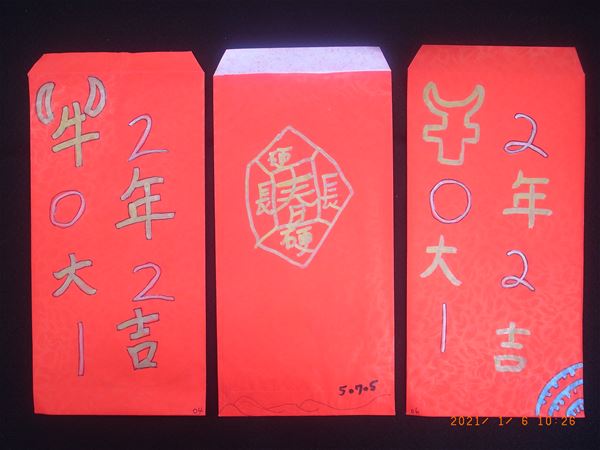 2年2吉
牛0大1
04
硬
長春長
硬
5.7.5
2年2吉
牛0大1
06
2021/ 1/ 6 10:26